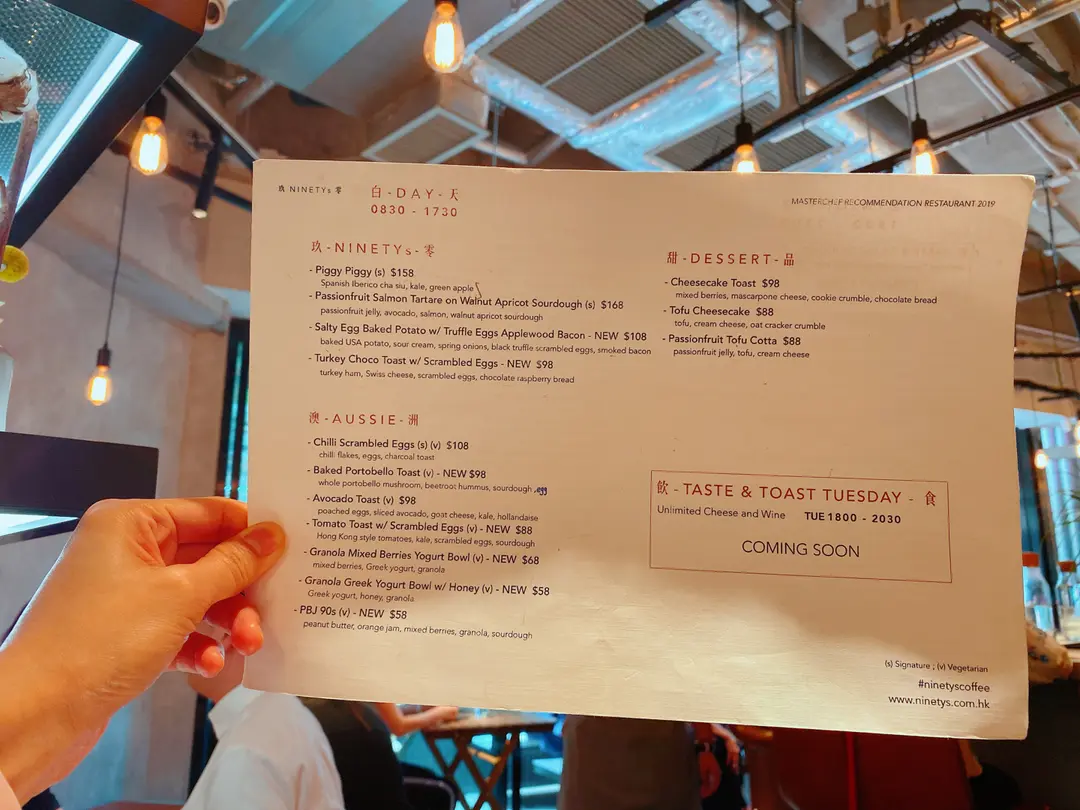 玖 NINETYs 零
白 - DAY - 天
0830 - 1730
MASTERCHEF RECOMMENDATION RESTAURANT 2019
玖 - NINETYs - 零
- Piggy Piggy (s) $158
Spanish Iberico cha siu, kale, green apple
- Passionfruit Salmon Tartare on Walnut Apricot Sourdough (s) $168
passionfruit jelly, avocado, salmon, walnut apricot sourdough
- Salty Egg Baked Potato w/ Truffle Eggs Applewood Bacon - NEW $108
baked USA potato, sour cream, spring onions, black truffle scrambled eggs, smoked bacon
- Turkey Choco Toast w/ Scrambled Eggs - NEW $98
turkey ham, Swiss cheese, scrambled eggs, chocolate raspberry bread
澳 - AUSSIE - 洲
- Chilli Scrambled Eggs (s) (v) $108
chilli flakes, eggs, charcoal toast
- Baked Portobello Toast (v) - NEW $98
whole portobello mushroom, beetroot hummus, sourdough, egg
- Avocado Toast (v) $98
poached eggs, sliced avocado, goat cheese, kale, hollandaise
- Tomato Toast w/ Scrambled Eggs (v) - NEW $88
Hong Kong style tomatoes, kale, scrambled eggs, sourdough
- Granola Mixed Berries Yogurt Bowl (v) - NEW $68
mixed berries, Greek yogurt, granola
- Granola Greek Yogurt Bowl w/ Honey (v) - NEW $58
Greek yogurt, honey, granola
- PBJ 90s (v) - NEW $58
peanut butter, orange jam, mixed berries, granola, sourdough
甜 - DESSERT - 品
- Cheesecake Toast $98
mixed berries, mascarpone cheese, cookie crumble, chocolate bread
- Tofu Cheesecake $88
tofu, cream cheese, oat cracker crumble
- Passionfruit Tofu Cotta $88
passionfruit jelly, tofu, cream cheese
飲 - TASTE & TOAST TUESDAY - 食
Unlimited Cheese and Wine TUE 1800 - 2030
COMING SOON
(s) Signature ; (v) Vegetarian
#ninetyscoffee
www.ninetys.com.hk